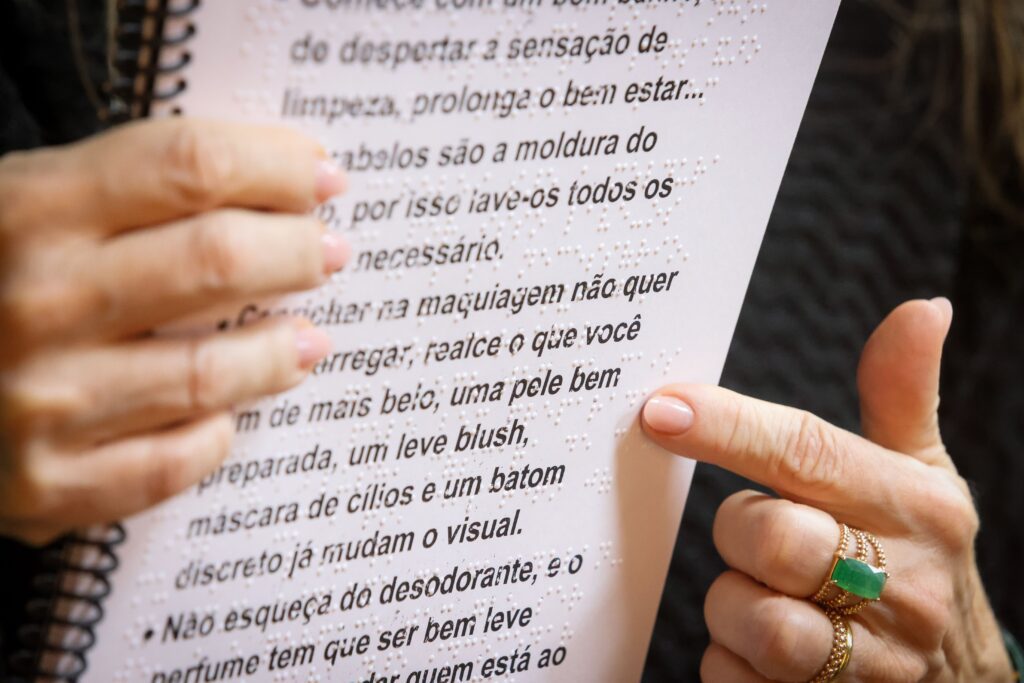 Comece com um bom banho,
de despertar a sensação de
limpeza, prolonga o bem estar...
cabelos são a moldura do
por isso lave-os todos os
necessário.
• Caprichar na maquiagem não quer
carregar, realce o que você
de mais belo, uma pele bem
preparada, um leve blush,
máscara de cílios e um batom
discreto já mudam o visual.
• Não esqueça do desodorante, e o
perfume tem que ser bem leve
quem está ao